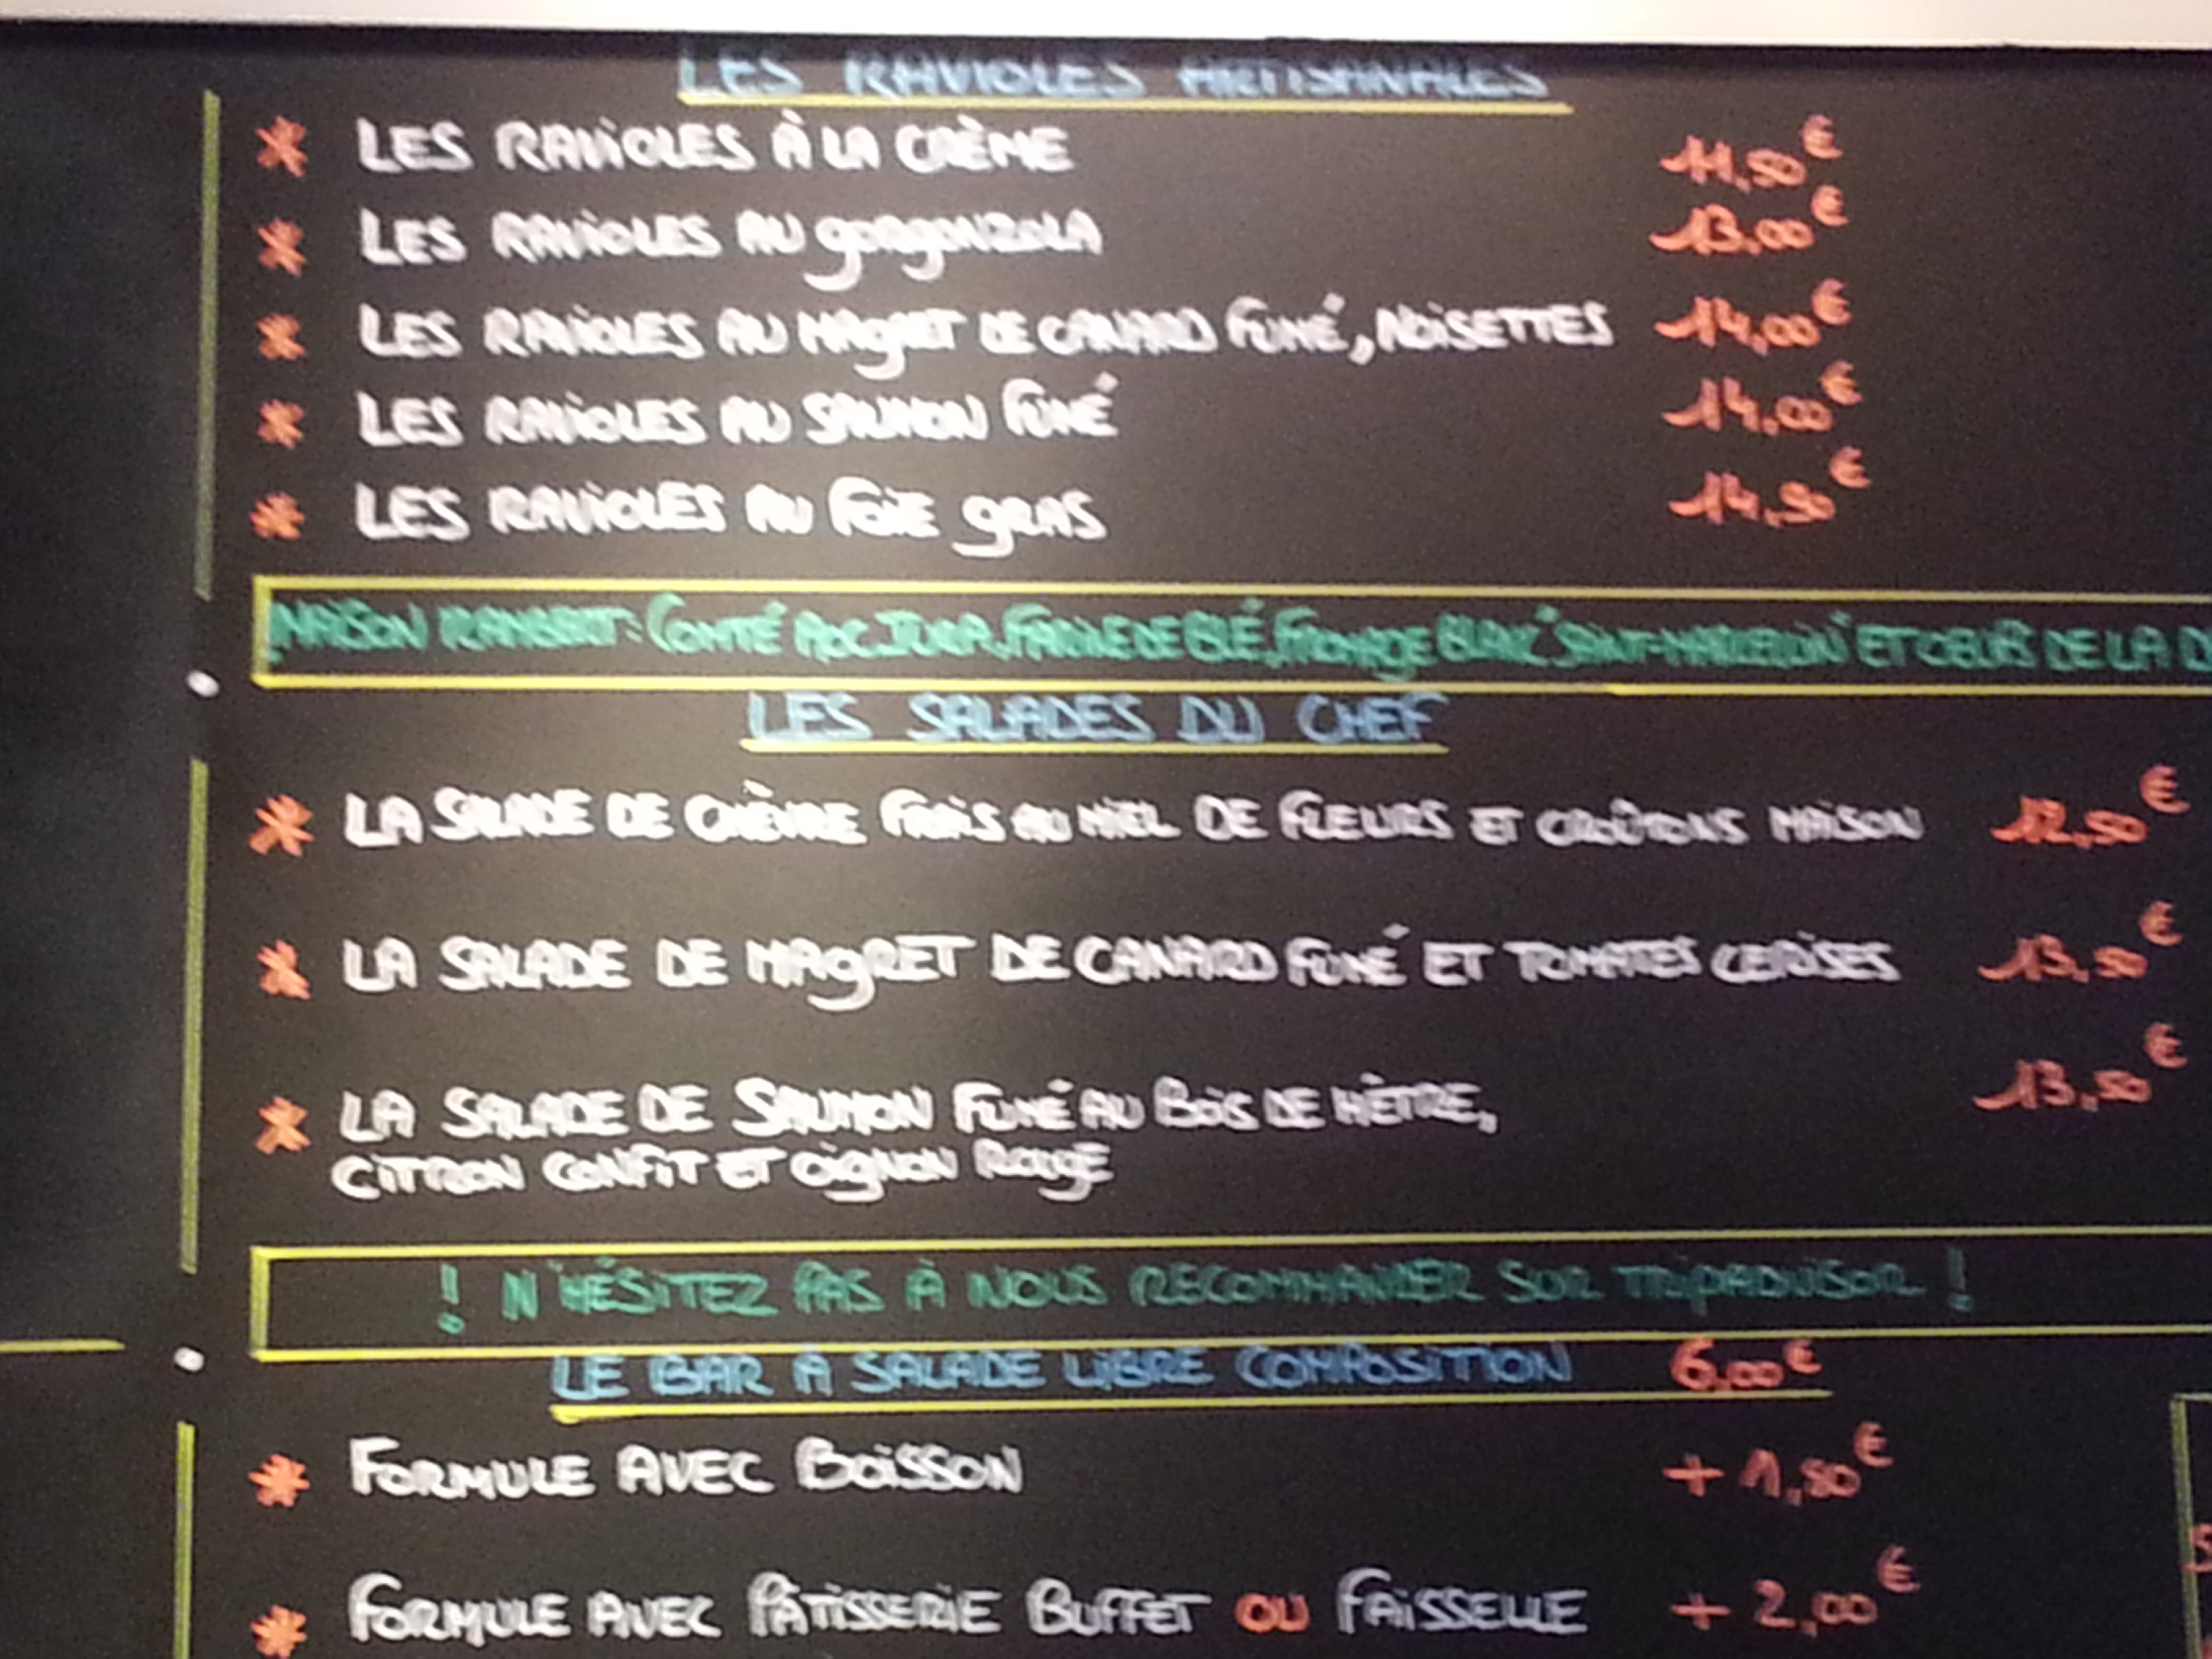 LES RAVIOLES ARTISANALES
* LES RAVIOLES À LA CRÈME 11,50€
* LES RAVIOLES AU GORGONZOLA 13,00€
* LES RAVIOLES AU MAGRET DE CANARD FUMÉ, NOISETTES 14,00€
* LES RAVIOLES AU SAUMON FUMÉ 14,00€
* LES RAVIOLES AU FOIE GRAS 14,50€
MAISON RAMBERT: COMTÉ AOC JURA, FARINE DE BLÉ, FROMAGE BLANC "SAINT-MARCELLIN" ET OEUFS DE LA
LES SALADES DU CHEF
* LA SALADE DE CHÈVRE FRAIS AU MIEL DE FLEURS ET CROÛTONS MAISON 12,50€
* LA SALADE DE MAGRET DE CANARD FUMÉ ET TOMATES CERISES 13,50€
* LA SALADE DE SAUMON FUMÉ AU BOIS DE HÊTRE, 13,50€
CITRON CONFIT ET OIGNON ROUGE
! N'HÉSITEZ PAS À NOUS RECOMMANDER SUR TRIPADVISOR !
LE BAR À SALADE LIBRE COMPOSITION 6,00€
* FORMULE AVEC BOISSON + 1,50€
* FORMULE AVEC PÂTISSERIE BUFFET OU FAISSELLE + 2,00€